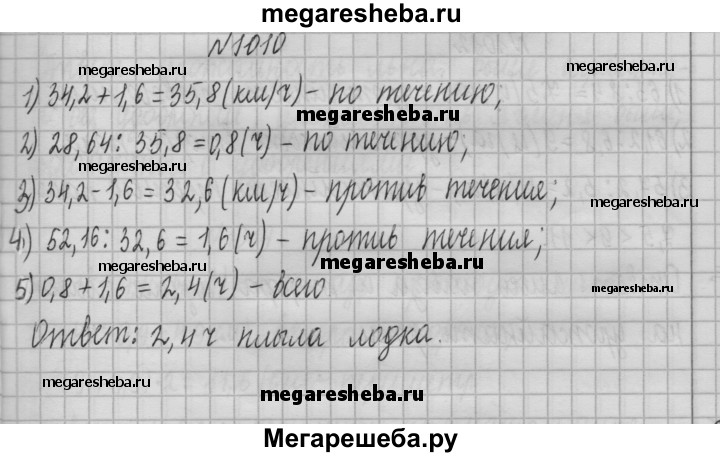 megaresheba.ru
№1010
megaresheba.ru megaresheba.ru
1) 34,2+1,6=35,8(км/ч)- по течению;
megaresheba.ru
2) 28,64: 35,8=0,8(ч) - по течению;
3) 34,2-1,6 = 32,6(км/ч)-против течения;
megaresheba.ru
4) 52,16: 32,6 = 1,6(ч) - против течения;
megaresheba.ru
5) 0,8+1,6 = 2,4(ч) - всего
megaresheba.ru
Ответ: 2,4ч плыла лодка.
megaresheba.ru
megaresheba.ru
Мегарешеба.ру